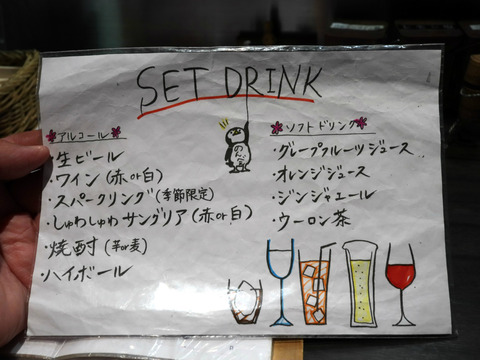 SET DRINK
アルコール
・生ビール
・ワイン(赤or白)
・スパークリング(季節限定)
・しゅわしゅわサングリア(赤or白)
・焼酎(芋or麦)
・ハイボール
ソフトドリンク
・グレープフルーツジュース
・オレンジジュース
・ジンジャエール
・ウーロン茶